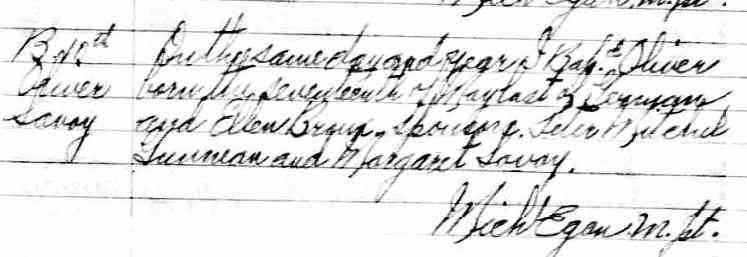 Mich Egan. M. pt.
B. 40th On the same day and year I Bapt. Oliver
Oliver born the seventeenth of May last of
Savoy and Ellen Breau, sponsors. Peter Mitchel
and Margaret Savoy.
Mich Egan M. pt.